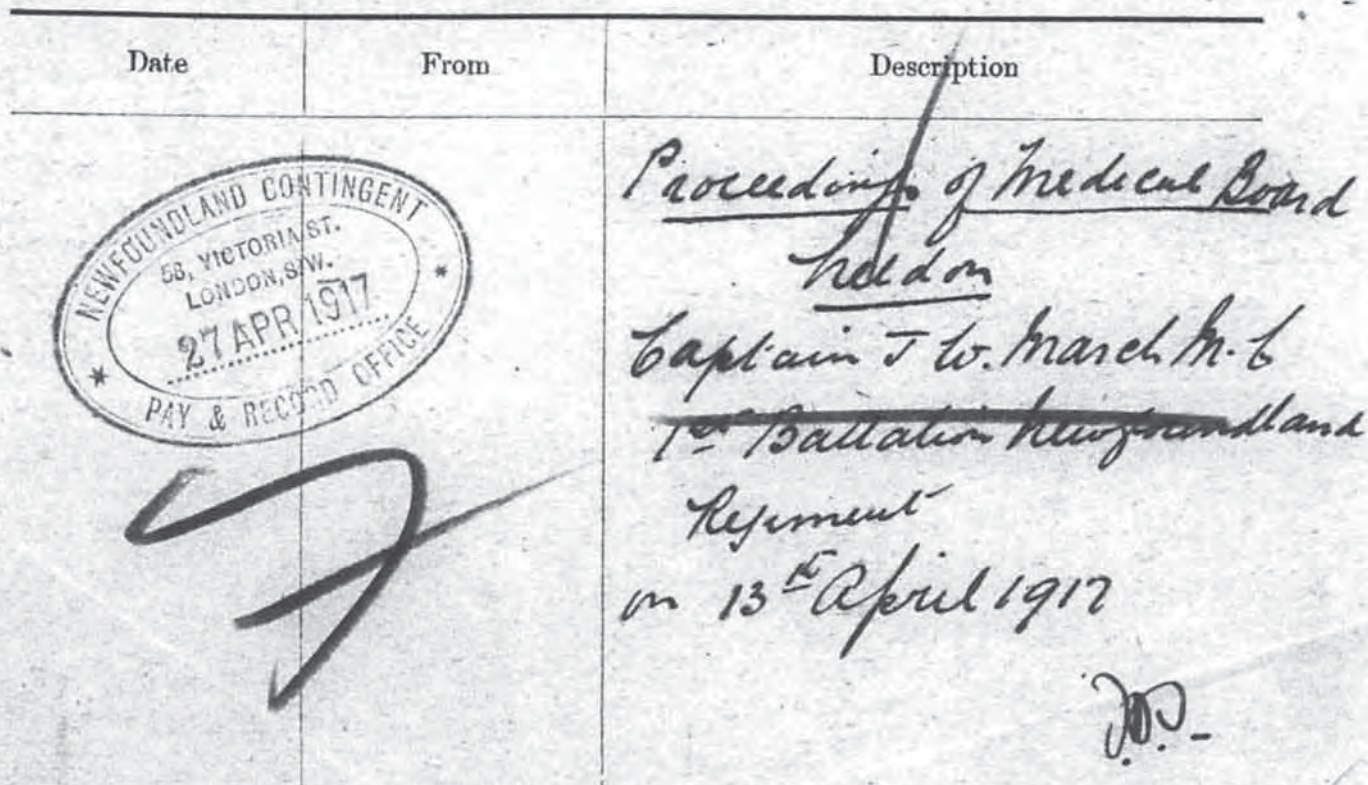 Date From Description
NEWFOUNDLAND CONTINGENT
58, VICTORIA ST.
LONDON, S.W.
27 APR 1917
* PAY & RECORD OFFICE *
Proceedings of Medical Board
held on
Captain J W. March M.C
1st Battalion Newfoundland
Regiment
on 13th April 1917